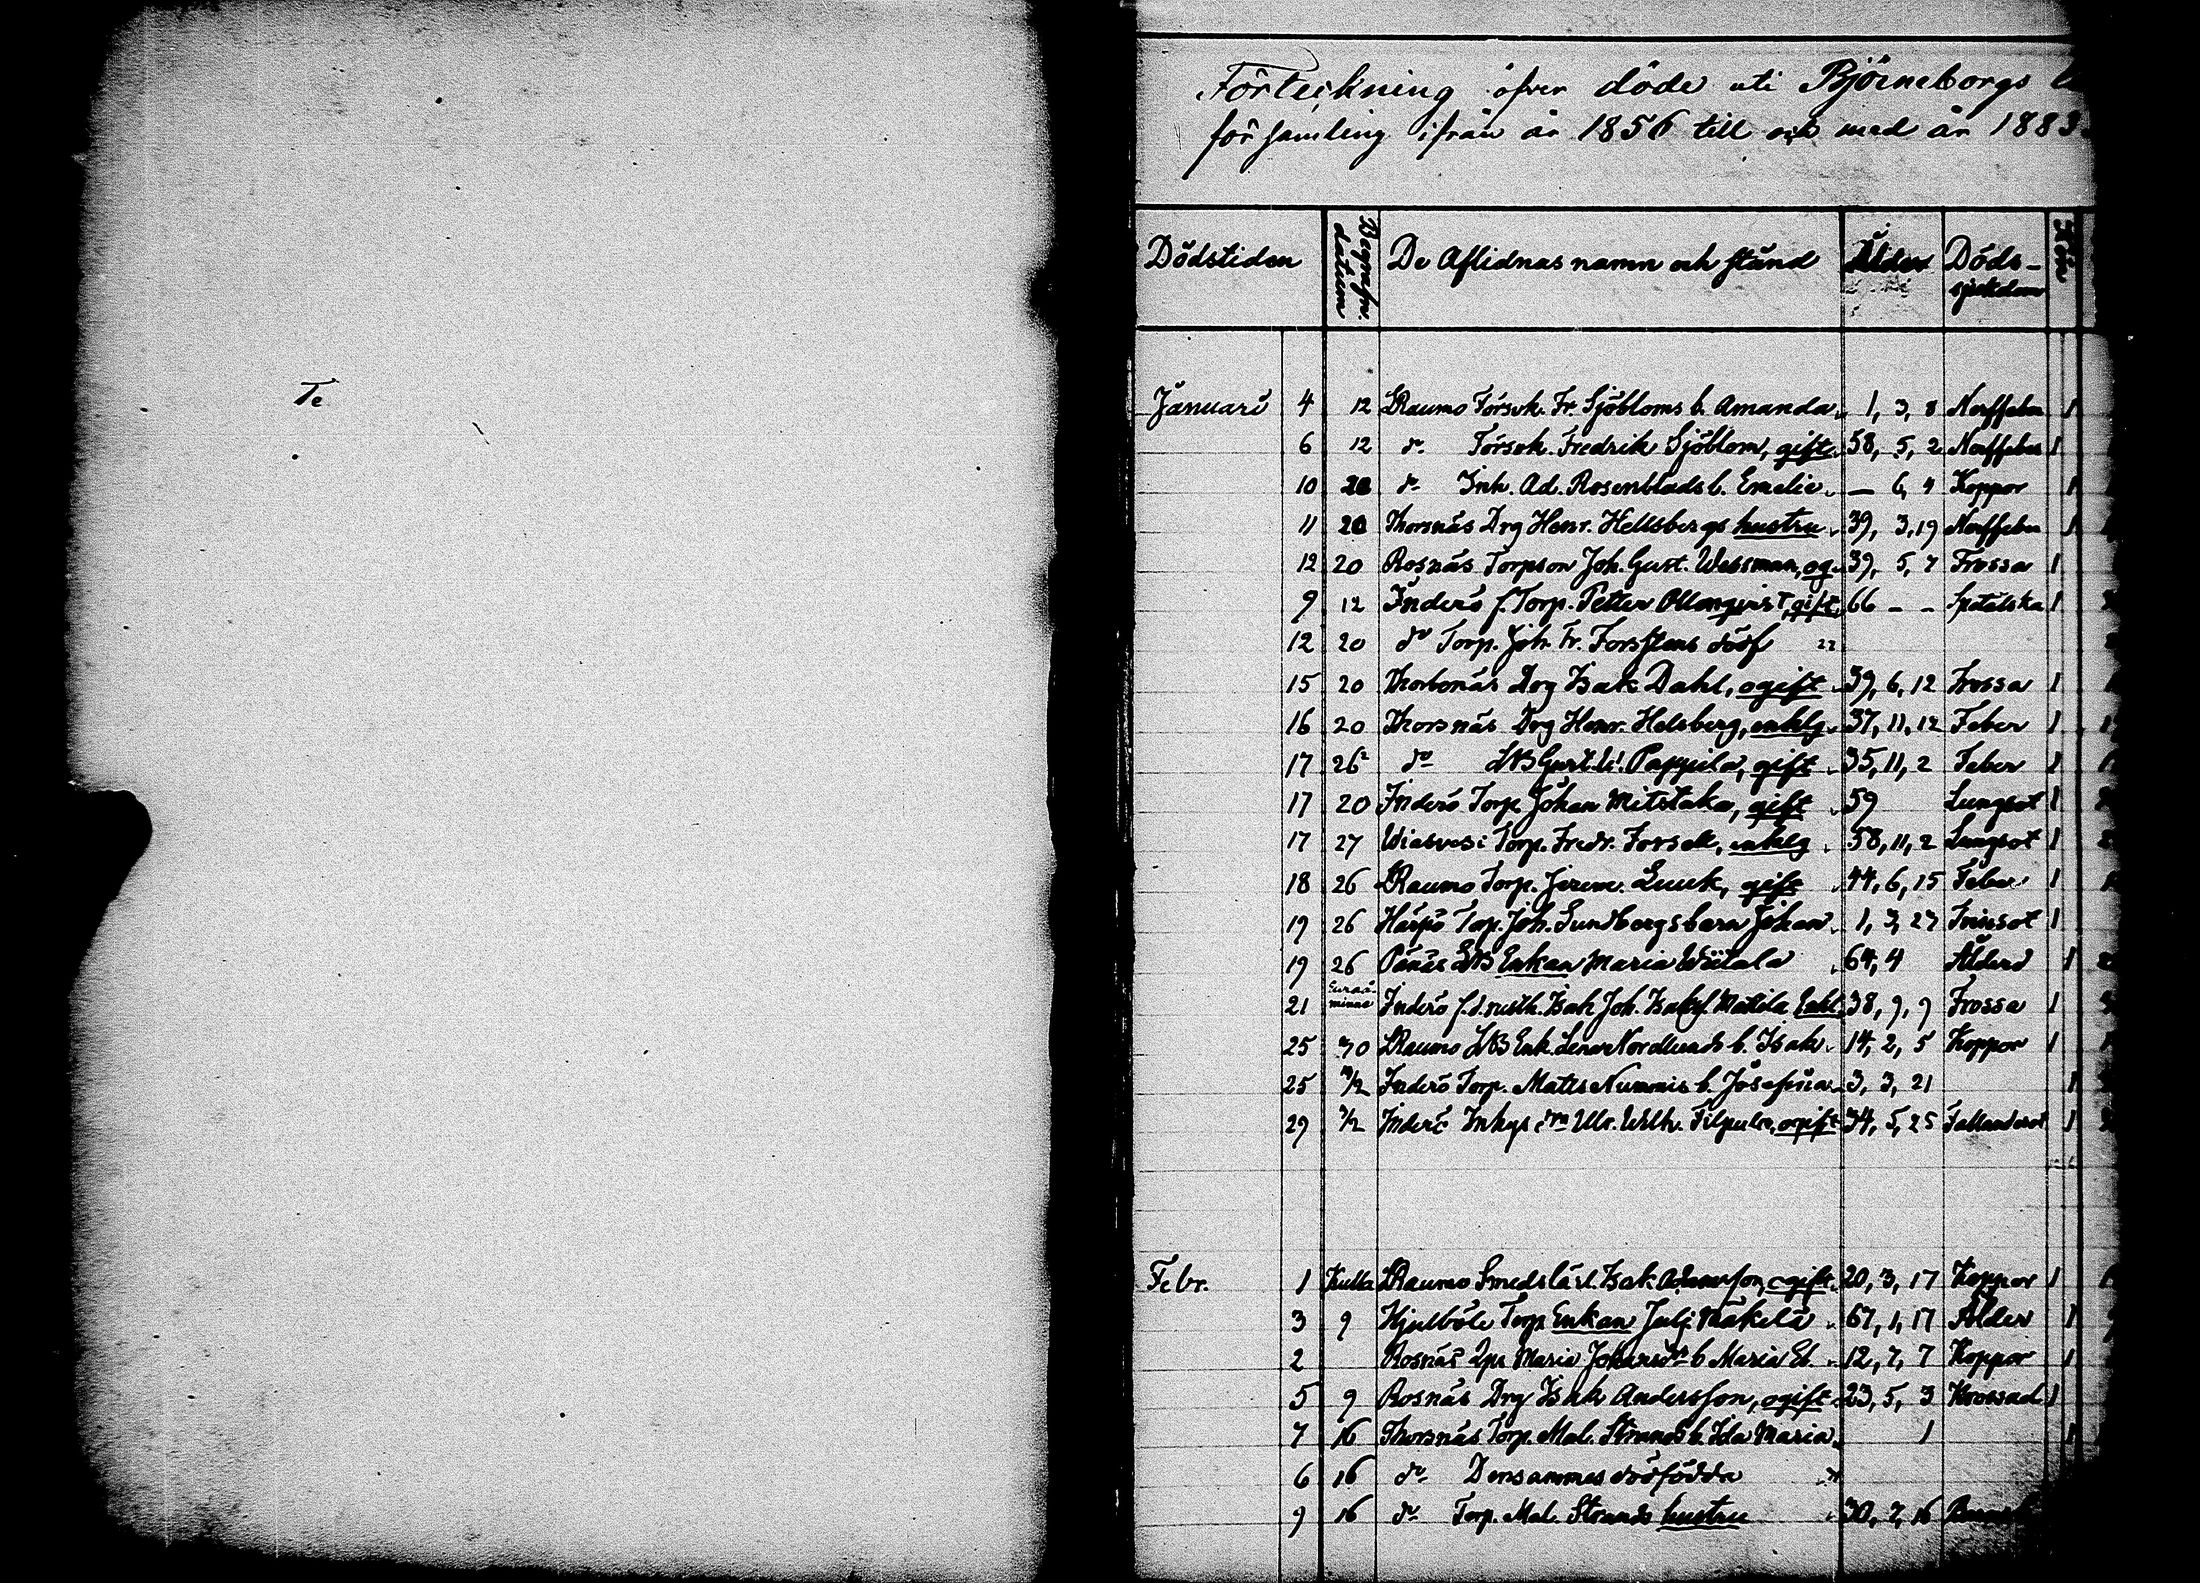 Te
Förteckning öfver döde uti Björneborgs
församling ifrån år 1856 till och med år 1883
Dödstiden Begrafn. datum De Aflidnas namn och stånd Ålder Döds-sjukdom Kön
Januari 4 12 LRaumo Försvk. Fr. Sjöbloms b. Amanda 1, 3, 8 Nerffeber 1
6 12 do Försvk. Fredrik Sjöblom, gift 58, 5, 2 Nerffeber 1
10 20 do Inh. Ad. Rosenblads b. Emelie — 6, 4 Koppor 1
11 20 Thorsnäs Drg Henr. Hellsbergs hustru 39, 3, 19 Nerffeber 1
12 20 Rosnäs Torpson Joh. Gust. Wessman, og. 39, 5, 7 Frossa 1
9 12 Inderö f. Torp. Petter Ollonqvist, gift 66 - - Spetälska 1
12 20 do Torp. Joh. Fr. Forstens döf
15 20 Drg Isak Dahl, ogift 39, 6, 12 Frossa 1
16 20 Thorsnäs Drg Henr. Helsberg, enklg 37, 11, 12 Feber 1
17 26 do Pappila, gift 35, 11, 2 Feber 1
17 20 Inderö Torp Johan Mitstaka, gift 59 Lungsot 1
17 27 Wiasvesi Torp. Fredr. Forsell, enklg 58, 11, 2 Lungsot 1
18 26 LRaumo Torp. Jerem. Luuk, gift 44, 6, 15 Feber 1
19 26 Harjo Torp. Joh. Sundbergs barn Johan 1, 3, 27 Trinsot 1
19 26 Pänäs Enkan Maria Wiitala 64, 4 Ålderd 1
21 Euraåminne Inderö Isak Joh. Matila Enkl 38, 9, 9 Frossa 1
25 30 LRaumo Enk. Lena Nordlunds b. Isak 14, 2, 5 Koppor 1
25 /2 Inderö Torp. Matts Nummis b. Josefina 3, 3, 21 1
29 /2 Inderö Ulr. Wilh. Filpula, ogift 34, 5, 25 Fallandesot 1
Febr. 1 Kulla LRaumo Smedslärl. Isak Adamsson, ogift 20, 3, 17 Koppor 1
3 9 Hjulböle Torp Enkan Julj. Mäkelä 67, 1, 17 Ålder 1
2 Rosnäs Maria Johansdr b Maria El. 12, 7, 7 Koppor 1
5 9 Rosnäs Drg Isak Andersson, ogift 23, 5, 3 Krossad 1
7 16 Thorsnäs Torp. Mal. Strands b. Ida Maria 1 1
6 16 do Densammes dödfödda
9 16 do Torp. Mal. Strands hustru 30, 7, 16